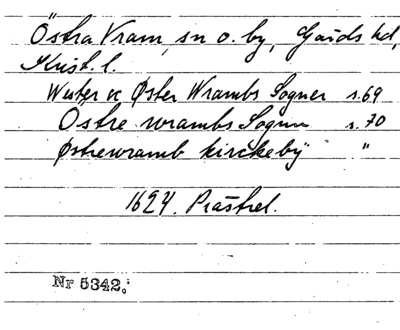 Östra Vram, sn o. by, Gärds hd,
Krist. l.
Wester oc Øster Wrambs Sogner s. 69
Östre wrambs Sognn s. 70
Østrewramb kirckeby "
1624. Prästrel.
Nr 5342.